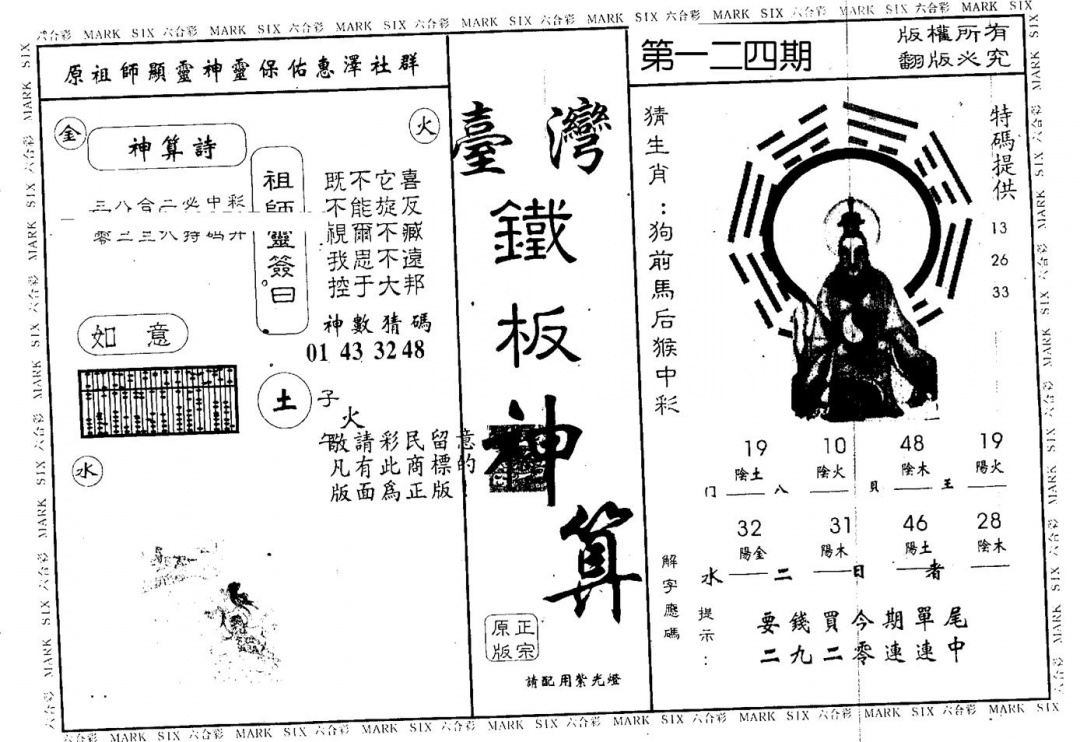 MARK SIX 六合彩 MARK SIX 六合彩 MARK SIX 六合彩 MARK SIX 六合彩 MARK SIX 六合彩 MARK SIX 六合彩 MARK SIX 六合彩 MARK SIX
原祖師顯靈神靈保佑惠澤社群
金
火
神算詩
三八合二必中彩
祖師靈簽曰
既不它喜
不能旋反
視爾不臧
我思不遠
控于大邦
神數猜碼
01 43 32 48
如意
土
子
火
午
水
敬請彩民留意
凡有此商標的
版面爲正版
臺灣
鐵
板
神
算
正宗
原版
請配用紫光燈
第一二四期
版權所有
翻版必究
猜生肖：狗前馬后猴中彩
特碼提供
13
26
33
19 10 48 19
陰土 陰火 陰木 陽火
门 八 貝 王
32 31 46 28
陽金 陽木 陽土 陰木
水 二 日 者
解字應碼
提示：
要錢買今期單尾
二九二零連連中
MARK SIX 六合彩 MARK SIX 六合彩 MARK SIX 六合彩 MARK SIX 六合彩 MARK SIX 六合彩 MARK SIX 六合彩 MARK SIX 六合彩 MARK SIX